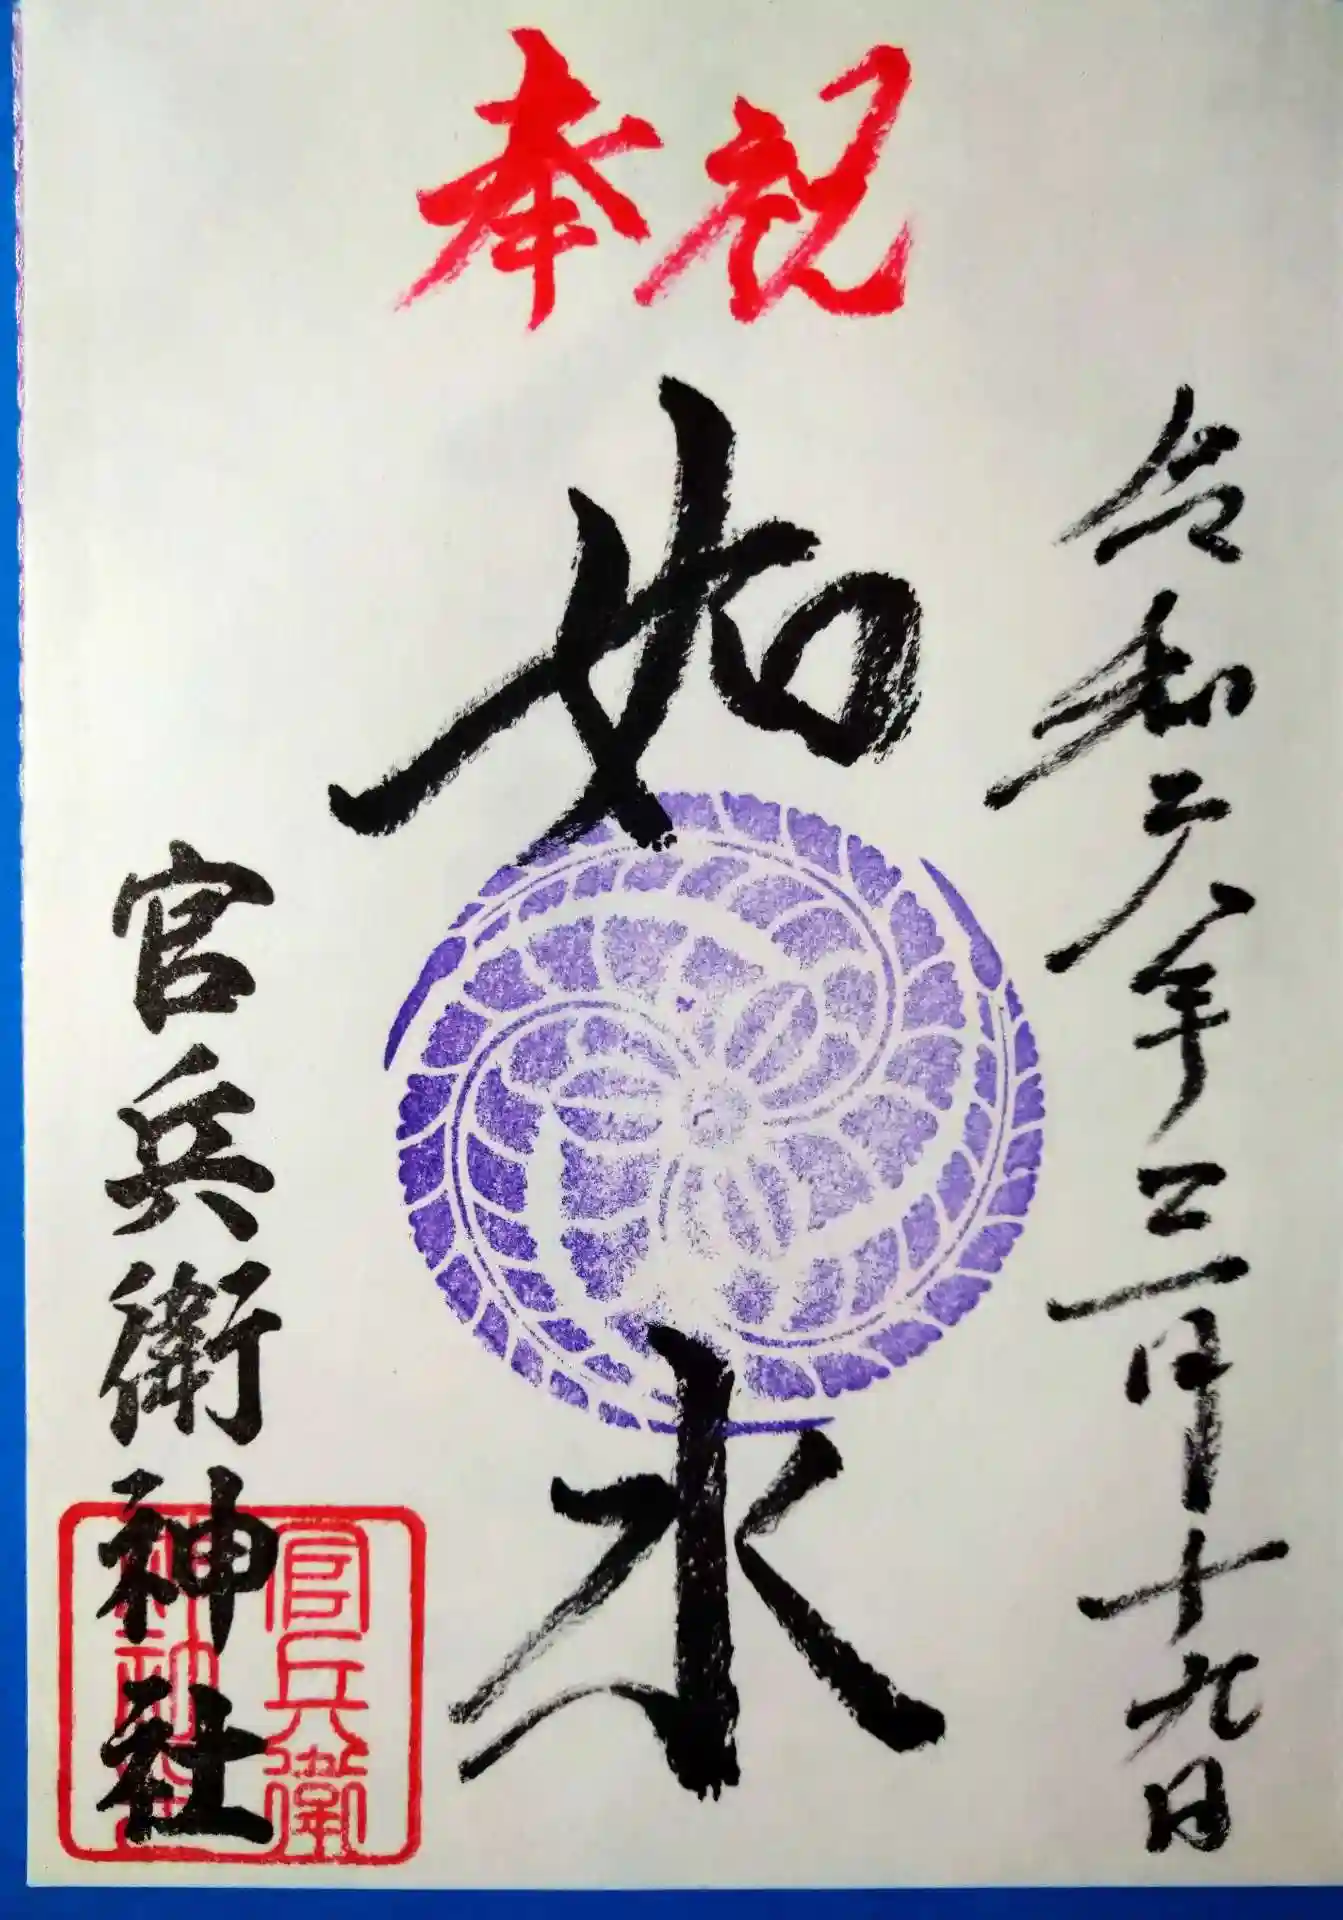 奉祝
令和六年三月十九日
如水
官兵衛神社
官兵衛